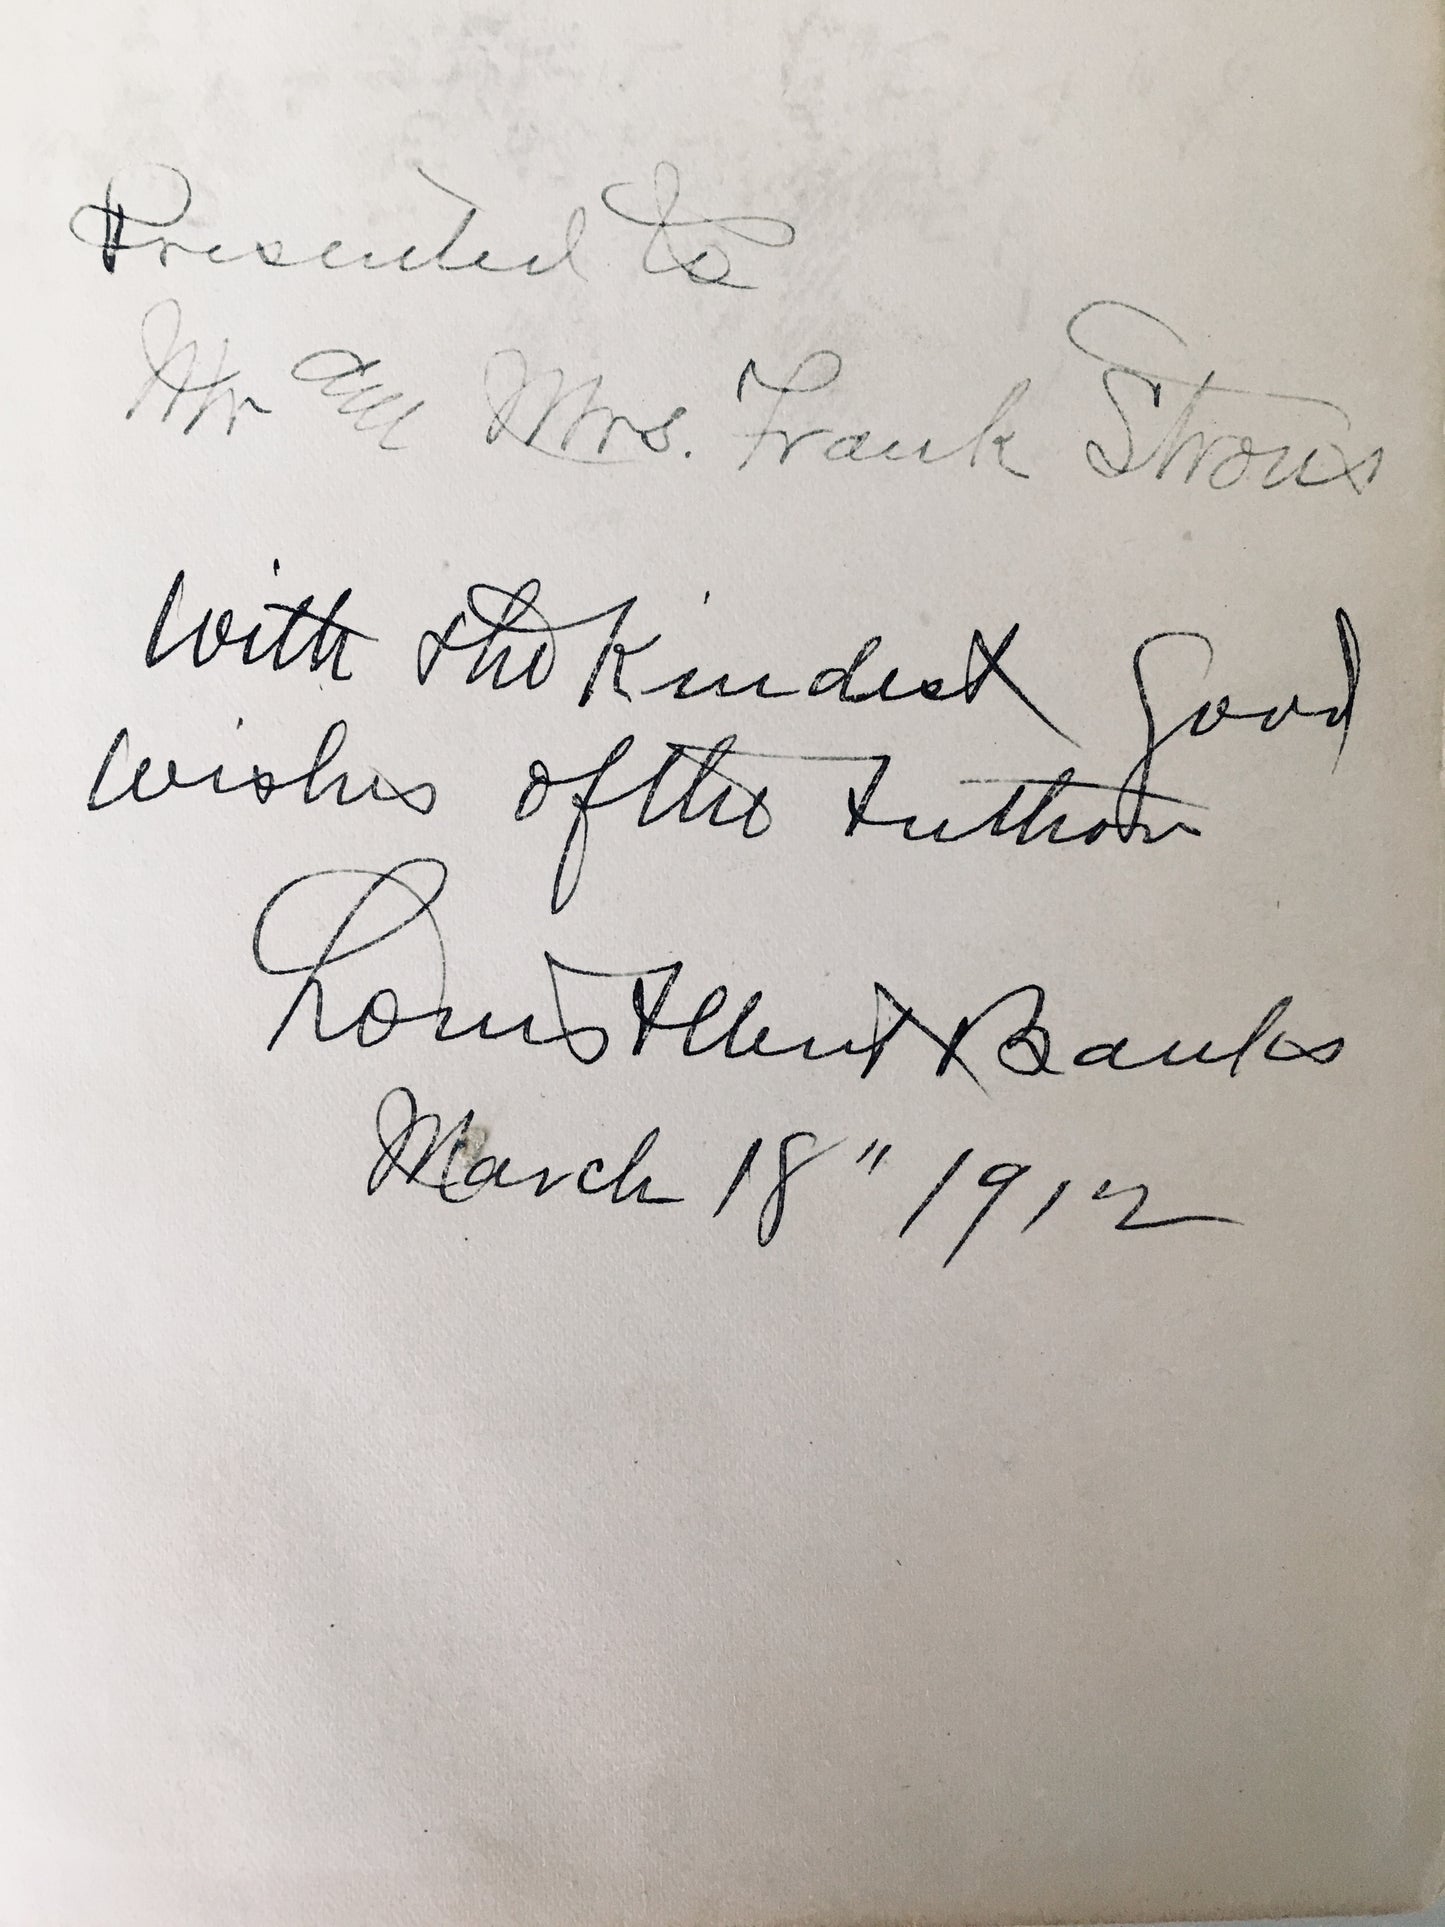 Presented to
Mr and Mrs. Frank Strous
with the kindest good
wishes of the Author
Louis Albert Banks
March 18" 1912